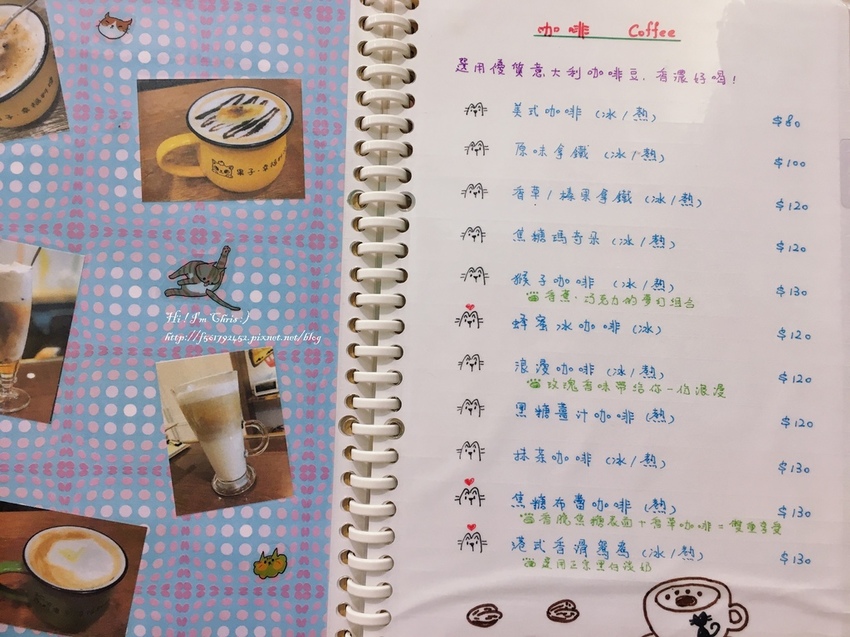 咖啡 Coffee
選用優質意大利咖啡豆，香濃好喝！
美式咖啡（冰/熱） $80
原味拿鐵（冰/熱） $100
香草/榛果拿鐵（冰/熱） $120
焦糖瑪奇朵（冰/熱） $120
猴子咖啡（冰/熱） $130
香蕉、巧克力的夢幻組合
蜂蜜冰咖啡（冰） $120
浪漫咖啡（冰/熱） $120
玫瑰香味帶給你一份浪漫
黑糖薑汁咖啡（熱） $120
抹茶咖啡（冰/熱） $130
焦糖布蕾咖啡（熱） $130
香脆焦糖表面+香草咖啡=雙重享受
港式香滑鴛鴦（冰/熱） $130
選用正宗黑白淡奶
Hi! I'm Chris:)
http://f561792452.pixnet.net/blog